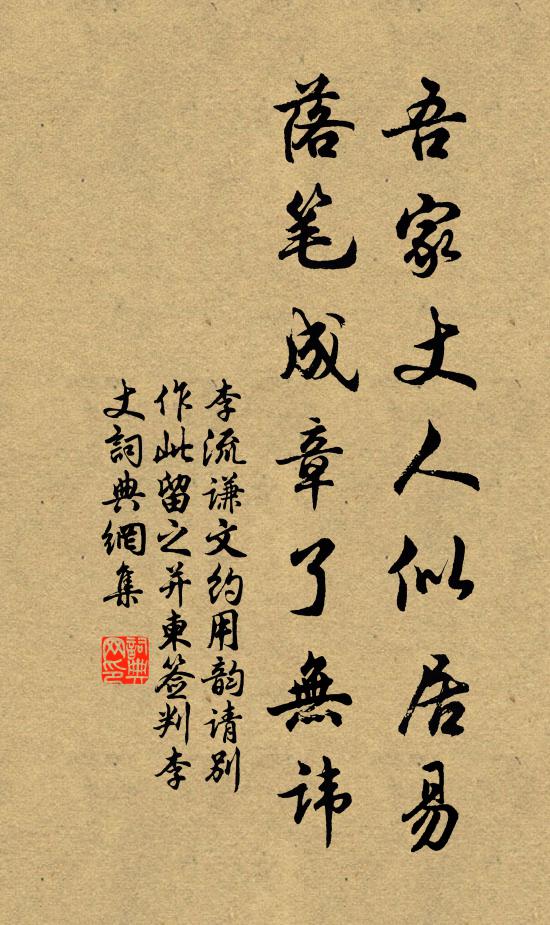 吾家丈人似居易
落笔成章了無諱
李流谦文约用韵请别
作此留之并柬签判李
丈詞典網集
詞典
网印